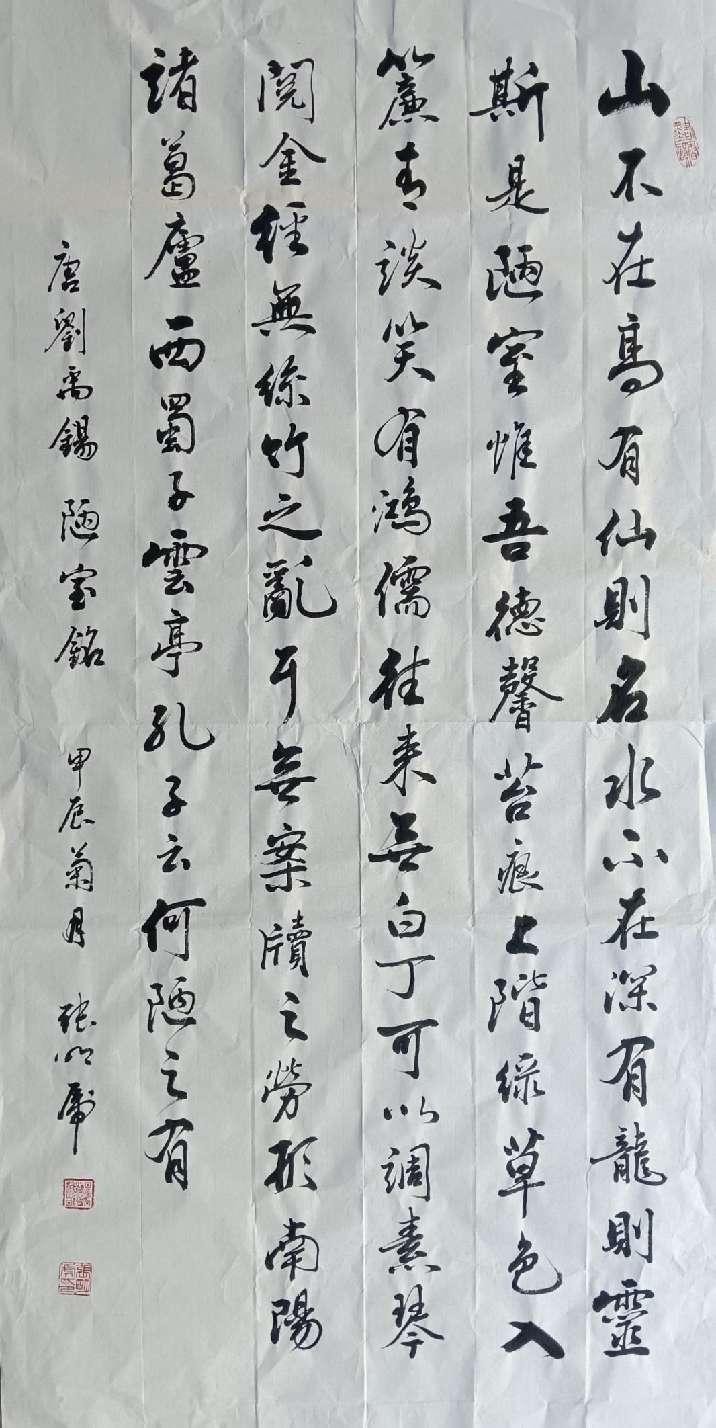 山不在高有仙則名水不在深有龍則靈
斯是陋室惟吾德馨苔痕上階緑草色入
簾青談笑有鴻儒往来無白丁可以調素琴
閲金經無絲竹之亂耳無案牘之勞形南陽
諸葛廬西蜀子雲亭孔子云何陋之有
唐劉禹錫 陋室銘 甲辰菊月 張